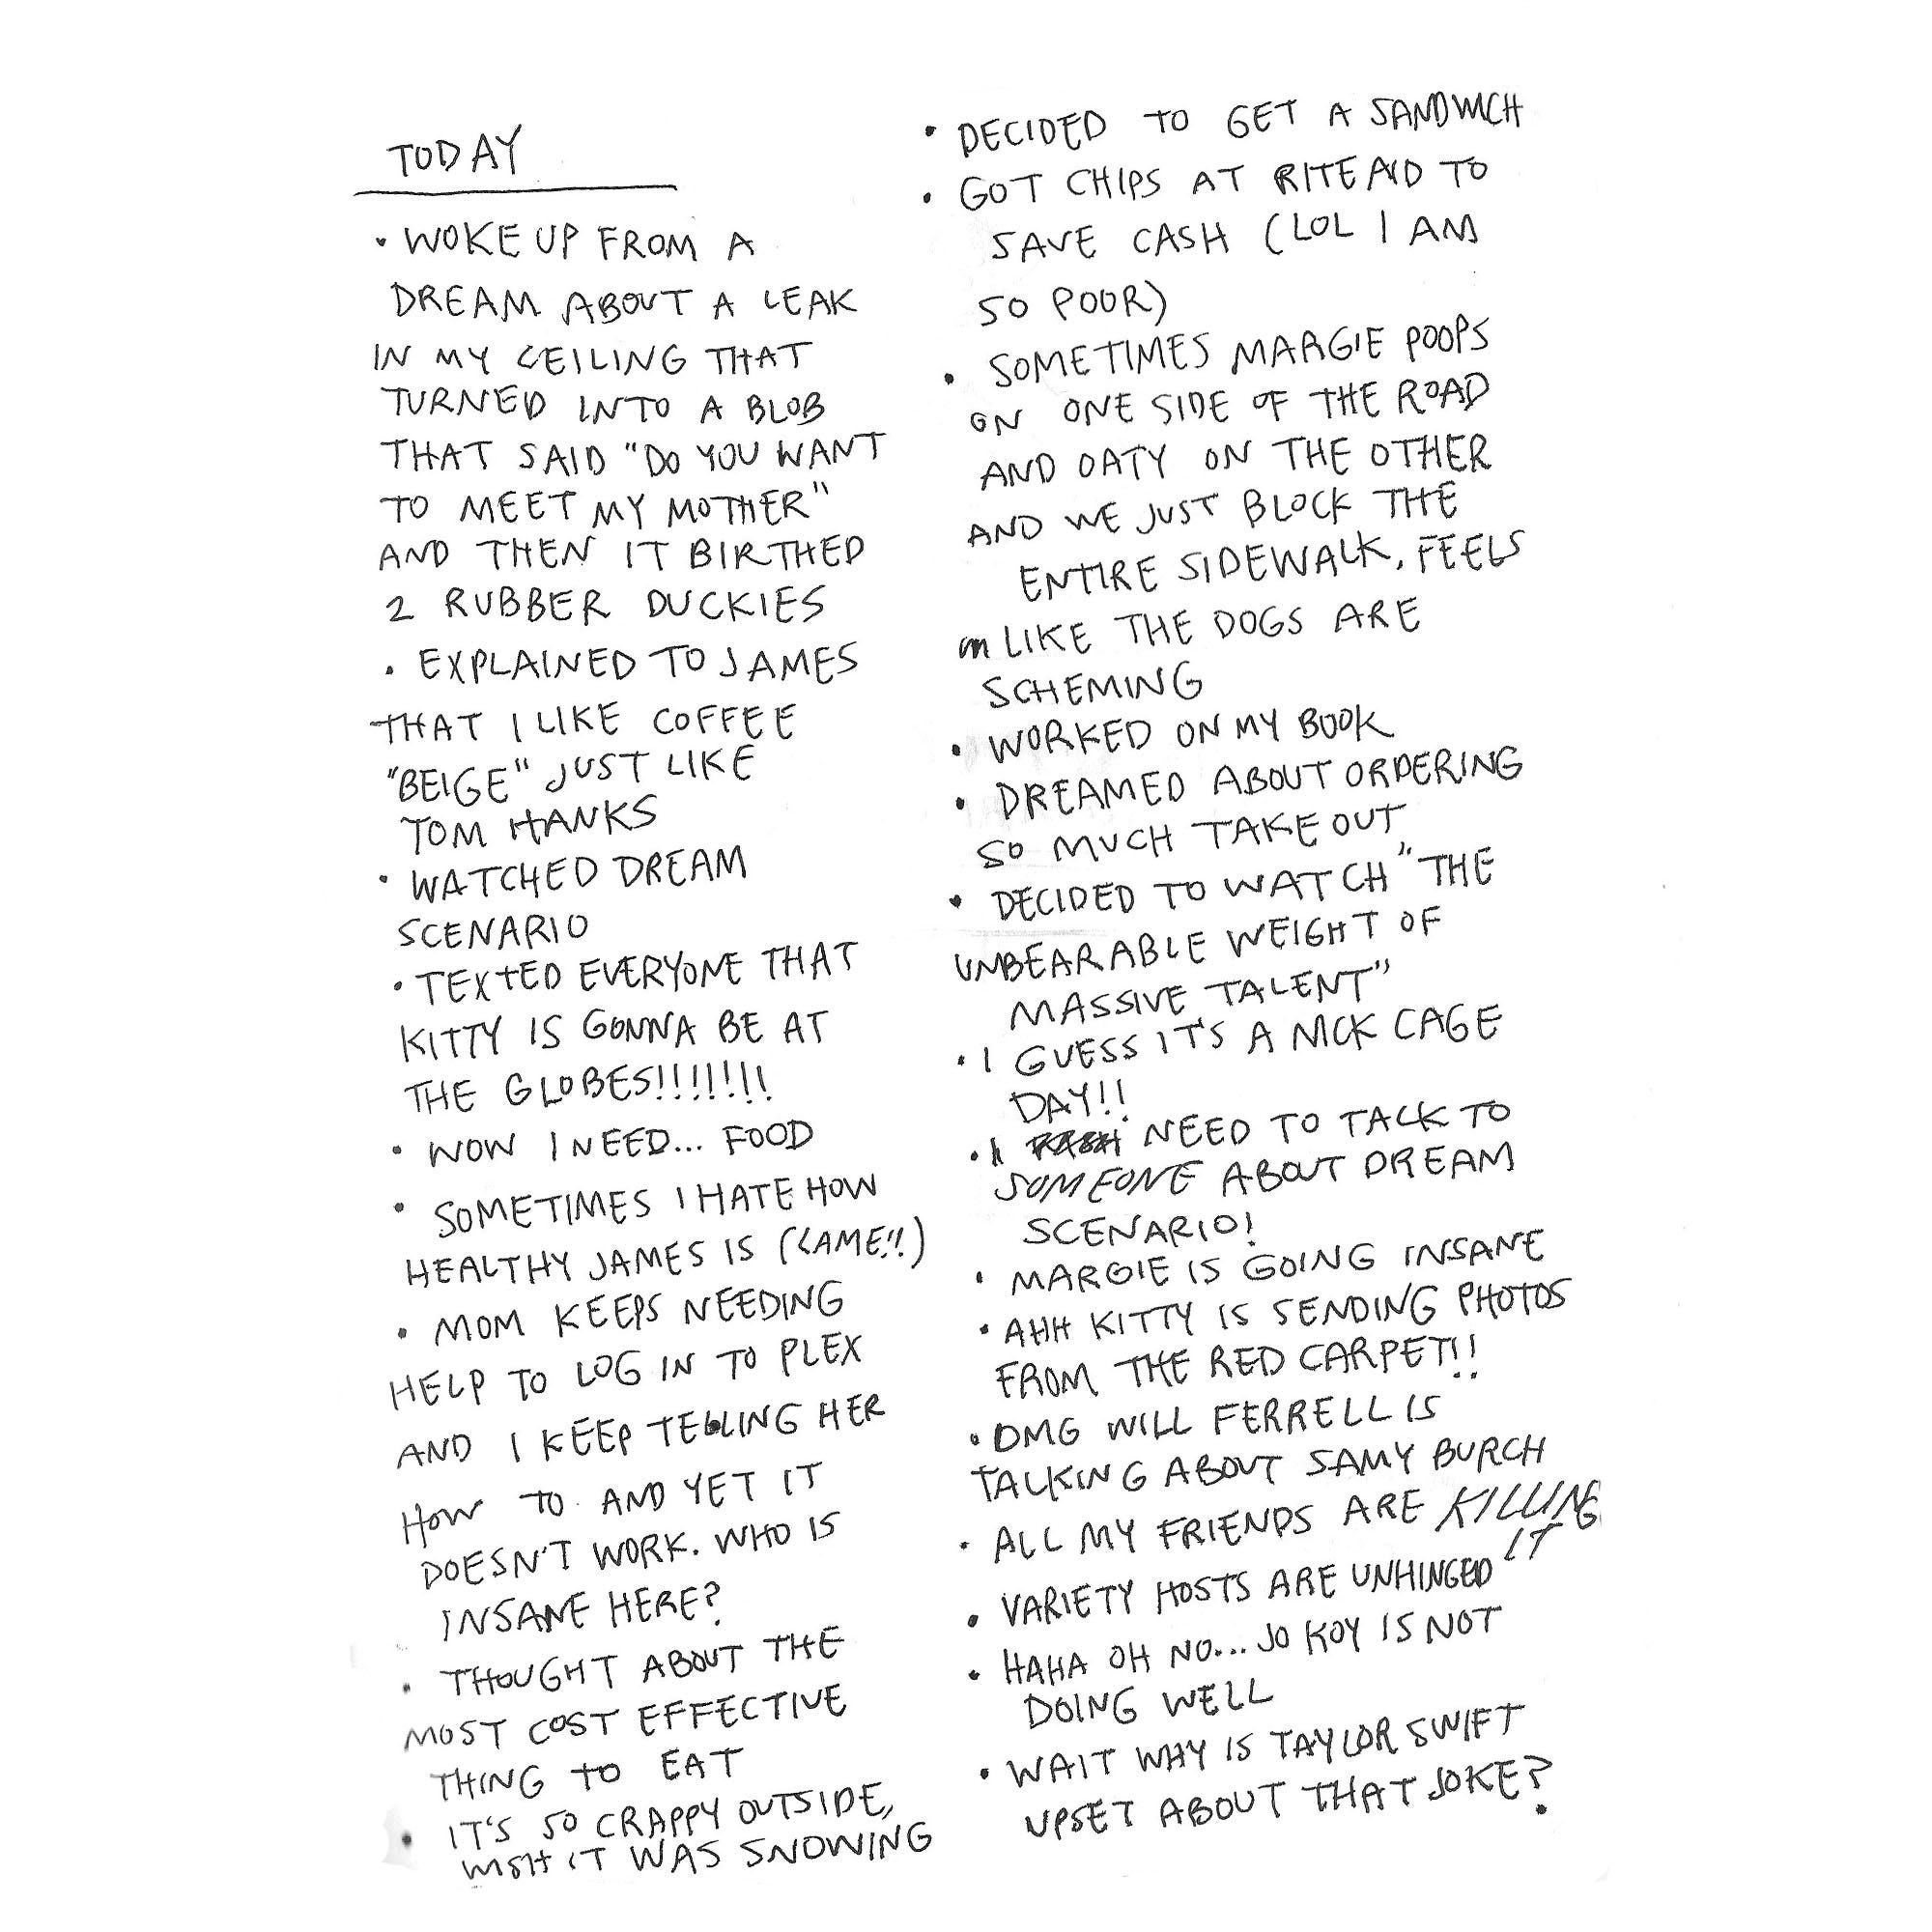 TODAY
• WOKE UP FROM A
DREAM ABOUT A LEAK
IN MY CEILING THAT
TURNED INTO A BLOB
THAT SAID "DO YOU WANT
TO MEET MY MOTHER"
AND THEN IT BIRTHED
2 RUBBER DUCKIES
• EXPLAINED TO JAMES
THAT I LIKE COFFEE
"BEIGE" JUST LIKE
TOM HANKS
• WATCHED DREAM
SCENARIO
• TEXTED EVERYONE THAT
KITTY IS GONNA BE AT
THE GLOBES!!!!!!!
• WOW I NEED... FOOD
• SOMETIMES I HATE HOW
HEALTHY JAMES IS (LAME!!)
• MOM KEEPS NEEDING
HELP TO LOG IN TO PLEX
AND I KEEP TELLING HER
HOW TO AND YET IT
DOESN'T WORK. WHO IS
INSANE HERE?
• THOUGHT ABOUT THE
MOST COST EFFECTIVE
THING TO EAT
• IT'S SO CRAPPY OUTSIDE,
WISH IT WAS SNOWING
• DECIDED TO GET A SANDWICH
• GOT CHIPS AT RITE AID TO
SAVE CASH (LOL I AM
SO POOR)
• SOMETIMES MARGIE POOPS
ON ONE SIDE OF THE ROAD
AND OATY ON THE OTHER
AND WE JUST BLOCK THE
ENTIRE SIDEWALK. FEELS
LIKE THE DOGS ARE
SCHEMING
• WORKED ON MY BOOK
• DREAMED ABOUT ORDERING
SO MUCH TAKE OUT
• DECIDED TO WATCH "THE
UNBEARABLE WEIGHT OF
MASSIVE TALENT"
• I GUESS IT'S A NICK CAGE
DAY!!
• I NEED TO TALK TO
SOMEONE ABOUT DREAM
SCENARIO!
• MARGIE IS GOING INSANE
• AHH KITTY IS SENDING PHOTOS
FROM THE RED CARPET!!
• OMG WILL FERRELL IS
TALKING ABOUT SAMY BURCH
• ALL MY FRIENDS ARE KILLING
IT
• VARIETY HOSTS ARE UNHINGED
• HAHA OH NO... JO KOY IS NOT
DOING WELL
• WAIT WHY IS TAYLOR SWIFT
UPSET ABOUT THAT JOKE?